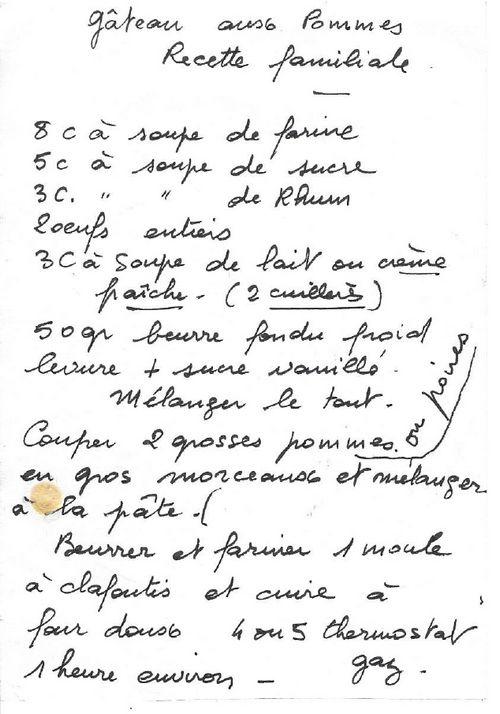 Gâteau aux Pommes
Recette familiale.
8 c à soupe de farine
5 c à soupe de sucre
3 c. " " de Rhum
2 oeufs entiers
3 c à soupe de lait ou crème
fraîche - (2 cuillers)
50 gr beurre fondu froid
levure + sucre vanillé.
Mélanger le tout.
Couper 2 grosses pommes. ou poires
en gros morceaux et mélanger
à la pâte. (
Beurrer et fariner 1 moule
à clafoutis et cuire à
four doux 4 ou 5 thermostat
1 heure environ - gaz.